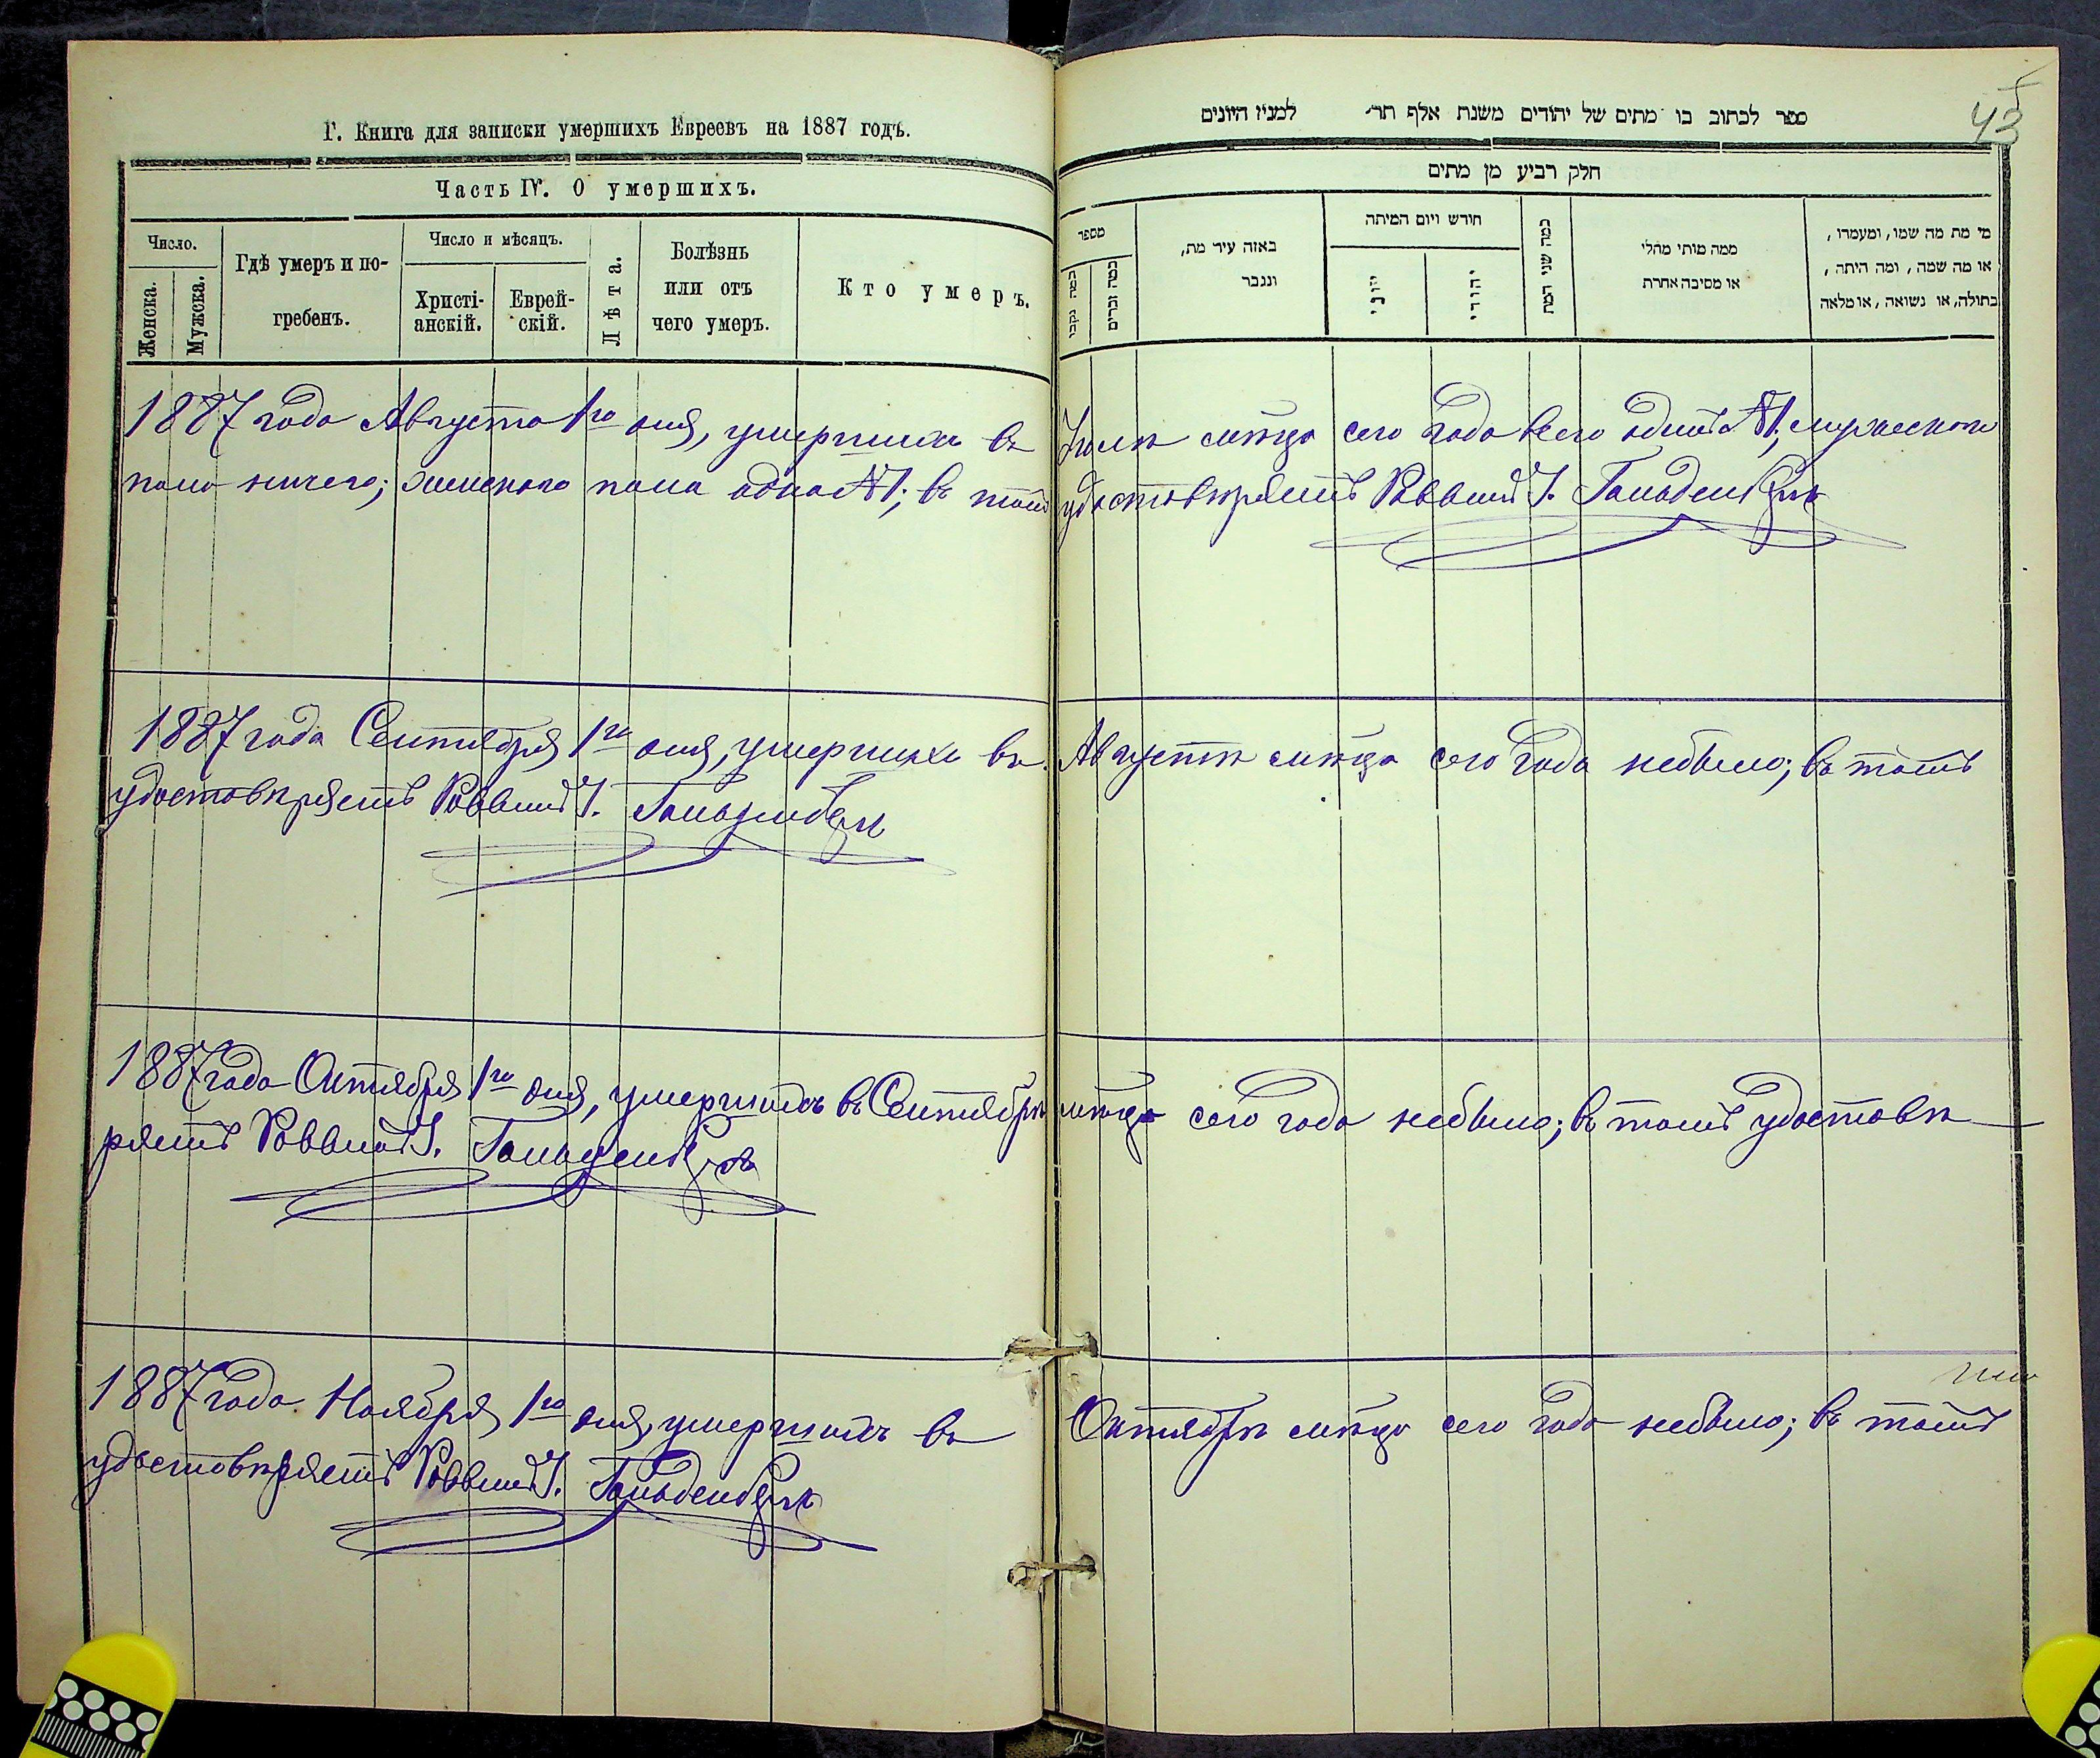 Г. Книга для записки умершихъ Евреевъ на 1887 годъ.
Часть IV. О умершихъ.
Число.
Женска.
Мужска.
Гдѣ умеръ и по-
гребенъ.
Число и мѣсяцъ.
Христі-
анскій.
Еврей-
скій.
Лѣта.
Болѣзнь
или отъ
чего умеръ.
Кто умеръ.
ספר לכתוב בו מתים של יהודים משנת אלף תר׳ למנין היונים
43
חלק רביע מן מתים
מספר
כמה נקבו
כמה זכרים
באזה עיר מת,
ונגבר
חודש ויום המיתה
יווני
יהודי
כמה שני המת
ממה מותי מחלי
או מסיבה אחרת
מי מת מה שמו, ומעמרו,
או מה שמה, ומה היתה,
בתולה, או נשואה, או מלאה
1887 года Августа 1го дня, умершихъ въ Іюлѣ мѣцѣ сего года всего одинъ №1; мужескаго
пола ничего; женскаго пола одна №1; въ томъ удостовѣряетъ Раввинъ І. Гольденбергъ
1887 года Сентября 1го дня, умершихъ въ Августѣ мѣцѣ сего года небыло; въ томъ
удостовѣряетъ Раввинъ І. Гольденбергъ
1887 года Октября 1го дня, умершихъ въ Сентябрѣ мѣцѣ сего года небыло; въ томъ удостовѣ
ряетъ Раввинъ І. Гольденбергъ
1887 года Ноября 1го дня, умершихъ въ Октябрѣ мѣцѣ сего года небыло; въ томъ
удостовѣряетъ Раввинъ І. Гольденбергъ